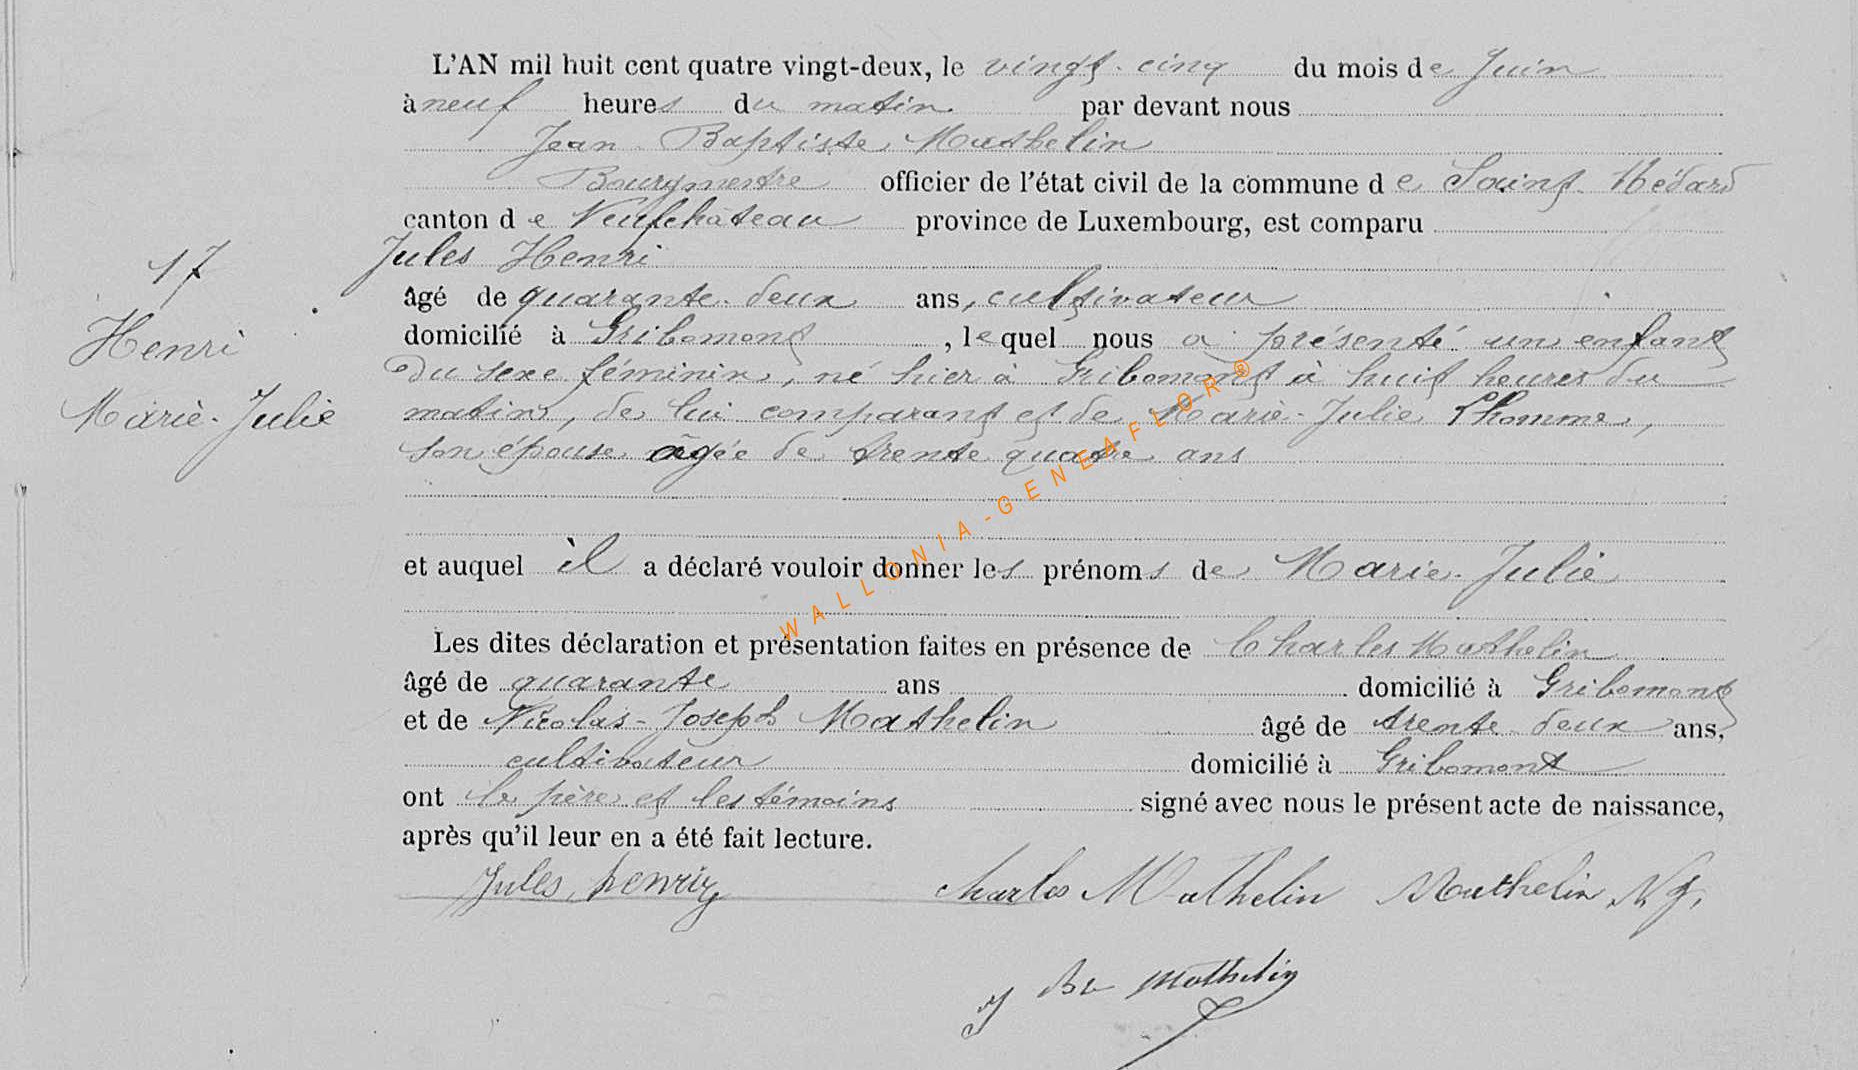 L'AN mil huit cent quatre vingt-deux, le vingt-cinq du mois de Juin
à neuf heures du matin par devant nous
Jean-Baptiste Mathelin
Bourgmestre officier de l'état civil de la commune de Saint-Médard
canton de Neufchâteau province de Luxembourg, est comparu
17
Jules Henri
âgé de quarante-deux ans, cultivateur
Henri
domicilié à Gribomont, lequel nous a présenté un enfant
du sexe féminin, né hier à Gribomont à huit heures du
Marie-Julie
matin, de lui comparant et de Marie-Julie Lhomme,
son épouse âgée de trente quatre ans
et auquel il a déclaré vouloir donner les prénoms de Marie-Julie
WALLONIA-GENEAFLOR®
Les dites déclaration et présentation faites en présence de Charles Mathelin
âgé de quarante ans domicilié à Gribomont
et de Nicolas-Joseph Mathelin âgé de trente-deux ans,
cultivateur domicilié à Gribomont
ont le père et les témoins signé avec nous le présent acte de naissance,
après qu'il leur en a été fait lecture.
Jules henry Charles Mathelin Mathelin N. J.
J Bte Mathelin